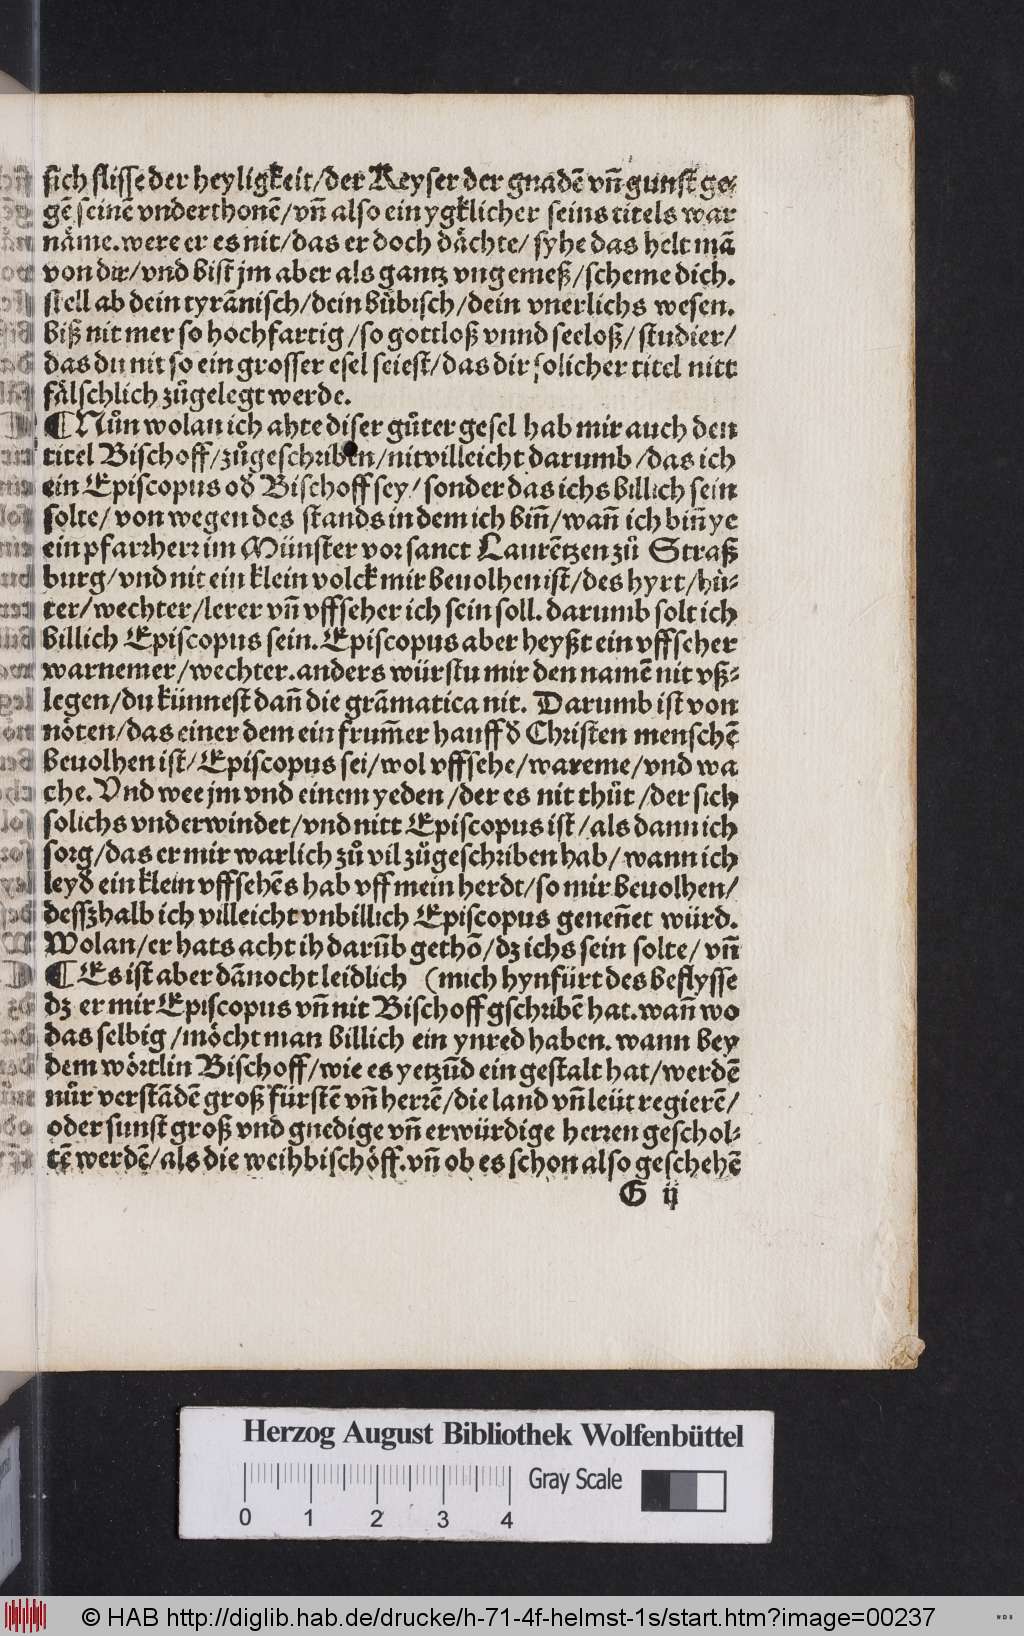 sich flisse der heyligkeit/der Keyser der gnadē vn̄ gunst ge-
gē seinē vnderthonē/vn̄ also ein ygklicher seins titels war
näme. were er es nit/das er doch dächte/ syhe das helt mā
von dir/vnd bist jm aber als gantz vngemeß/scheme dich.
stell ab dein tyrānisch/dein bübisch/dein vnerlichs wesen.
biß nit mer so hochfartig/so gottloß vnnd seeloß/ studier/
das du nit so ein grosser esel seiest/das dir solicher titel nitt
fälschlich zůgelegt werde.
¶ Nůn wolan ich ahte diser gůter gesel hab mir auch den
titel Bischoff/zůgeschriben/nit villeicht darumb/das ich
ein Episcopus od̄ Bischoff sey/ sonder das ichs billich sein
solte/ von wegen des stands in dem ich bin̄/wan̄ ich bin̄ ye
ein pfarrherr im Münster vor sanct Laurētzen zů Straß
burg/vnd nit ein klein volck mir beuolhen ist/des hyrt/hü-
ter/wechter/lerer vn̄ vffseher ich sein soll. darumb solt ich
billich Episcopus sein. Episcopus aber heyßt ein vffseher
warnemer/wechter. anders würstu mir den namē nit vß-
legen/du künnest dan̄ die grāmatica nit. Darumb ist von
nöten/das einer dem ein frum̄er hauff d̄ Christen menschē
beuolhen ist/Episcopus sei/wol vffsehe/wareme/vnd wa
che. Vnd wee jm vnd einem yeden/der es nit thůt/der sich
solichs vnderwindet/vnd nitt Episcopus ist/als dann ich
sorg/das er mir warlich zů vil zůgeschriben hab/wann ich
leyd̄ ein klein vffsehēs hab vff mein herdt/so mir beuolhen/
desszhalb ich villeicht vnbillich Episcopus genen̄et würd.
Wolan/er hats acht ih darūb gethō/dz ichs sein solte/vn̄
¶ Es ist aber dānocht leidlich (mich hynfürt des beflysse
dz er mir Episcopus vn̄ nit Bischoff gschribē hat. wan̄ wo
das selbig/möcht man billich ein ynred haben. wann bey
dem wörtlin Bischoff/wie es yetzūd ein gestalt hat/werdē
nůr verstādē groß fürstē vn̄ herrē/die land vn̄ leüt regierē/
oder sunst groß vnd gnedige vn̄ erwürdige herren geschol-
tē werdē/als die weihbischöff. vn̄ ob es schon also geschehē
G ij
Herzog August Bibliothek Wolfenbüttel
Gray Scale
0 1 2 3 4
© HAB http://diglib.hab.de/drucke/h-71-4f-helmst-1s/start.htm?image=00237
WDB